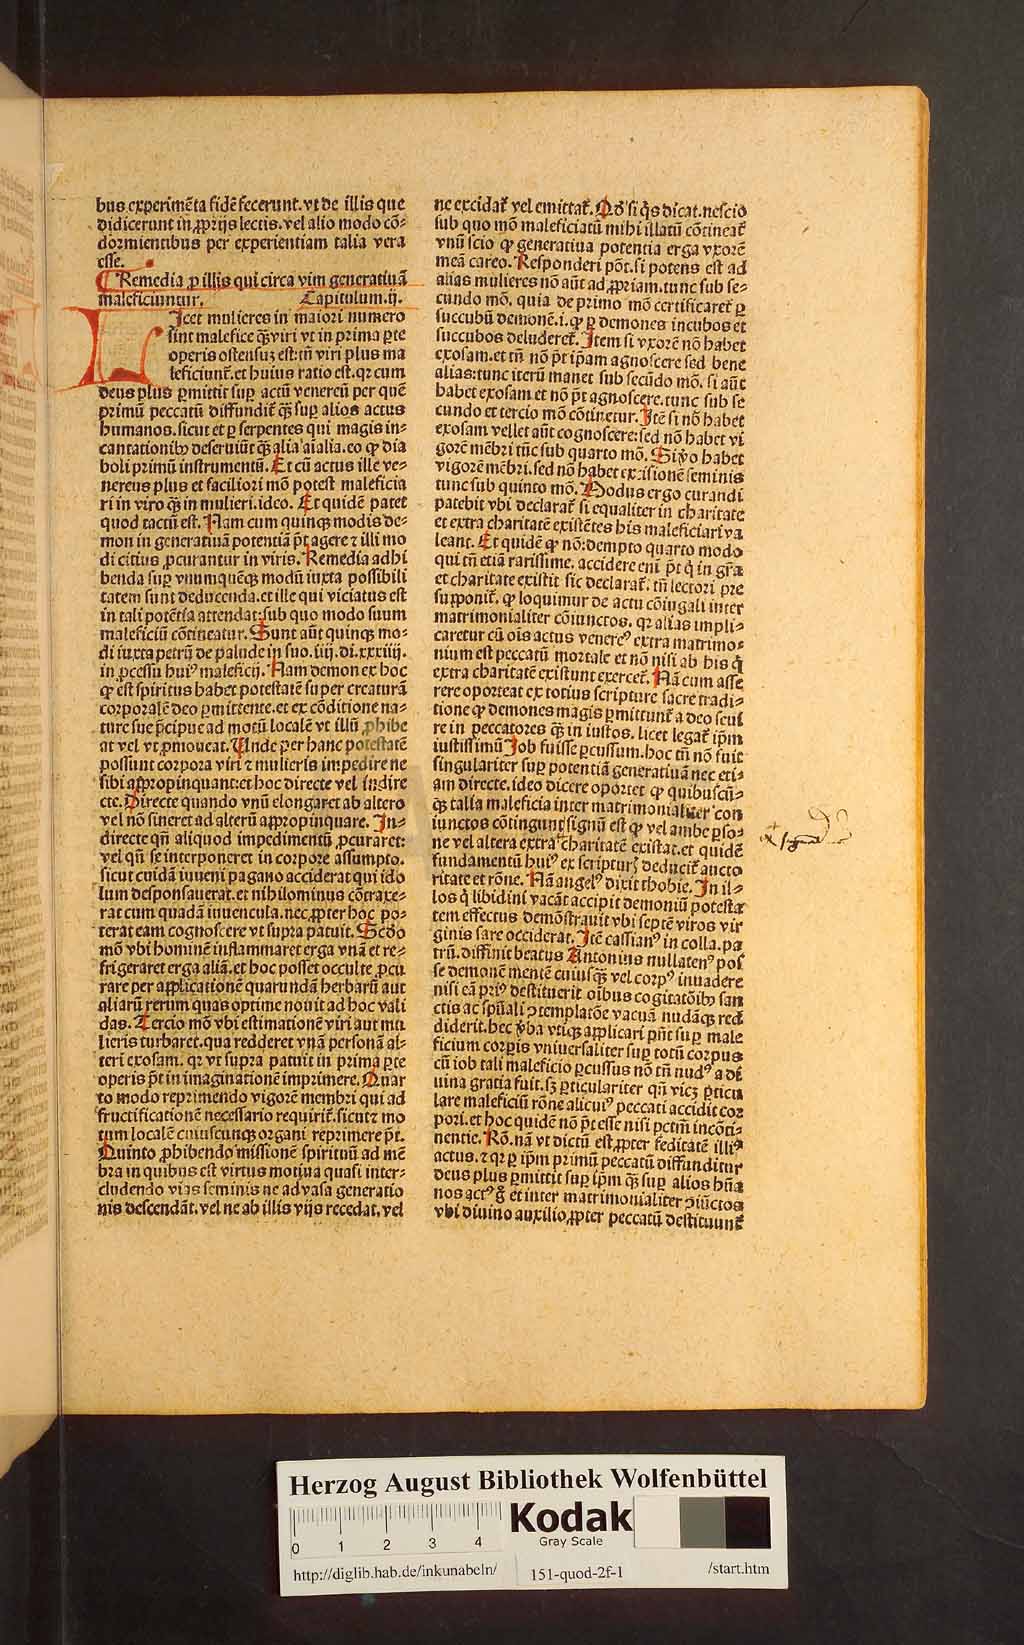 bus experimẽta fidẽ fecerunt. vt de illis que
didicerunt in ꝓprijs lectis. vel alio modo cõ-
dormientibus per experientiam talia vera
esse.
Remedia ꝓ illis qui circa vim generatiuã
maleficiuntur. Capitulum .ij.
LIcet mulieres in maiori numero
sint malefice qȝ viri vt in prima ꝑte
operis ostensuȝ est: tñ viri plus ma
leficiunt̃. et huius ratio est. qꝛ cum
deus plus ꝑmittit suꝑ actũ venereũ per quẽ
primũ peccatũ diffundit̃ qȝ suꝑ alios actus
humanos. sicut et ꝑ serpentes qui magis in-
cantationibꝰ deseruiũt qȝ alia aialia. eo ꝙ dia
boli primũ instrumentũ. Et cũ actus ille ve-
nereus plus et faciliori mõ potest maleficia
ri in viro qȝ in mulieri. ideo. Et quidẽ patet
quod tactũ est. Nam cum quinqȝ modis de-
mon in generatiuã potentiã p̃t agere ⁊ illi mo
di citius ꝓcurantur in viris. Remedia adhi
benda suꝑ vnumquẽqȝ modũ iuxta possibili
tatem sunt deducenda. et ille qui viciatus est
in tali potẽtia attendat: sub quo modo suum
maleficiũ cõtineatur. Sunt aũt quinqȝ mo-
di iuxta petrũ de palude in suo .iiij. di. xxxiiij.
in ꝓcessu huiꝰ maleficij. Nam demon ex hoc
ꝙ est spiritus habet potestatẽ super creaturã
corporalẽ deo ꝑmittente. et ex cõditione na-
ture sue p̃cipue ad motũ localẽ vt illũ ꝓhibe
at vel vt ꝓmoueat. Unde per hanc potestatẽ
possunt corpora viri ⁊ mulieris impedire ne
sibi appropinquant: et hoc directe vel indire
cte. Directe quando vnũ elongaret ab altero
vel nõ sineret ad alterũ appropinquare. In-
directe qñ aliquod impedimentũ ꝓcuraret:
vel qñ se interponeret in corpore assumpto.
sicut cuidã iuueni pagano acciderat qui ido
lum desponsauerat. et nihilominus cõtraxe-
rat cum quadã iuuencula. nec ꝓpter hoc po-
terat eam cognoscere vt supra patuit. Scd̃o
mõ vbi hominẽ inflammaret erga vnã et re-
frigeraret erga aliã. et hoc posset occulte ꝓcu
rare per applicationẽ quarundã herbarũ aut
aliarũ rerum quas optime nouit ad hoc vali
das. Tercio mõ vbi estimationẽ viri aut mu
lieris turbaret. qua redderet vnã personã al-
teri exosam. qꝛ vt supra patuit in prima ꝑte
operis p̃t in imaginationẽ imprimere. Quar
to modo reprimendo vigorẽ membri qui ad
fructificationẽ necessario requirit̃. sicut ⁊ mo
tum localẽ cuiuscunqȝ organi reprimere p̃t.
Quinto ꝓhibendo missionẽ spirituũ ad mẽ
bra in quibus est virtus motiua quasi inter-
cludendo vias seminis ne ad vasa generatio
nis descendãt. vel ne ab illis vijs recedat. vel
ne excidat̃ vel emittat̃. Qd̃ si qͥs dicat. nescio
sub quo mõ maleficiatũ mihi illatũ cõtineat̃
vnũ scio ꝙ generatiua potentia erga vxorẽ
meã careo. Responderi põt. si potens est ad
alias mulieres nõ aũt ad ꝓpriam. tunc sub se-
cundo mõ. quia de primo mõ certificaret̃ ꝑ
succubũ demonẽ. i. ꝙ ꝑ demones incubos et
succubos deluderet̃. Item si vxorẽ nõ habet
exosam. et tñ nõ p̃t ip̃am agnoscere sed bene
alias: tunc iterũ manet sub secũdo mõ. si aũt
habet exosam et nõ p̃t agnoscere. tunc sub se
cundo et tercio mõ cõtinetur. Itẽ si nõ habet
exosam vellet aũt cognoscere: sed nõ habet vi
gorẽ mẽbri tũc sub quarto mõ. Si ṽo habet
vigorẽ mẽbri. sed nõ habet excisionẽ seminis
tunc sub quinto mõ. Modus ergo curandi
patebit vbi declarat̃ si equaliter in charitate
et extra charitatẽ existẽtes his maleficiari va
leant. Et quidẽ ꝙ nõ: dempto quarto modo
qui tñ etiã rarissime. accidere eni p̃t qͥ in gr̃a
et charitate existit sic declarat̃. tñ lectori pre
supponit̃. ꝙ loquimur de actu cõiugali inter
matrimonialiter cõiunctos. qꝛ alias impli-
caretur cũ ois actus venereꝰ extra matrimo-
nium est peccatũ mortale et nõ nisi ab his qͥ
extra charitatẽ existunt exercet̃. Nã cum asse
rere oporteat ex totius scripture sacre tradi-
tione ꝙ demones magis ꝑmittunt̃ a deo seui
re in peccatores qȝ in iustos. licet legat̃ ip̃m
iustissimũ Job fuisse ꝑcussum. hoc tñ nõ fuit
singulariter suꝑ potentiã generatiuã nec eti-
am directe. ideo dicere oportet ꝙ quibuscũ-
qȝ talia maleficia inter matrimonialiter con
iunctos cõtingunt signũ est ꝙ vel ambe ꝑso-
ne vel altera extra charitatẽ existat. et quidẽ
fundamentũ huiꝰ ex scripturȝ deducit̃ aucto
ritate et rõne. Nã angelꝰ dixit thobie. In il-
los qͥ libidini vacãt accipit demoniũ potesta
tem effectus demõstrauit vbi septẽ viros vir
ginis sare occiderat. Itẽ cassianꝰ in colla. pa
trũ. diffinit beatus Antonius nullatenꝰ pos
se demonẽ mentẽ cuiusqȝ vel corpꝰ inuadere
nisi eã priꝰ destituerit oĩbus cogitatõibꝰ san
ctis ac sp̃uali ↄtemplatõe vacuã nudãqȝ red
diderit. hec ṽba vtiqȝ applicari pñt suꝑ male
ficium corꝑis vniuersaliter suꝑ totũ corpus
cũ iob tali maleficio ꝑcussus nõ tñ nudꝰ a di
uina gratia fuit. sȝ ꝑticulariter qñ vicȝ ꝑticu
lare maleficiũ rõne alicuiꝰ peccati accidit cor
pori. et hoc quidẽ nõ p̃t esse nisi pctm̃ incõti-
nentie. Rõ. nã vt dictũ est ꝓpter feditatẽ illiꝰ
actus. ⁊ qꝛ ꝑ ip̃m primũ peccatũ diffunditur
deus plus ꝑmittit suꝑ ip̃m qȝ suꝑ alios hũa
nos actꝰ g̊ et inter matrimonialiter ↄiũctos
vbi diuino auxilio ꝓpter peccatũ destituunt̃
signum
Herzog August Bibliothek Wolfenbüttel
0 1 2 3 4
Kodak
Gray Scale
http://diglib.hab.de/inkunabeln/ 151-quod-2f-1 /start.htm